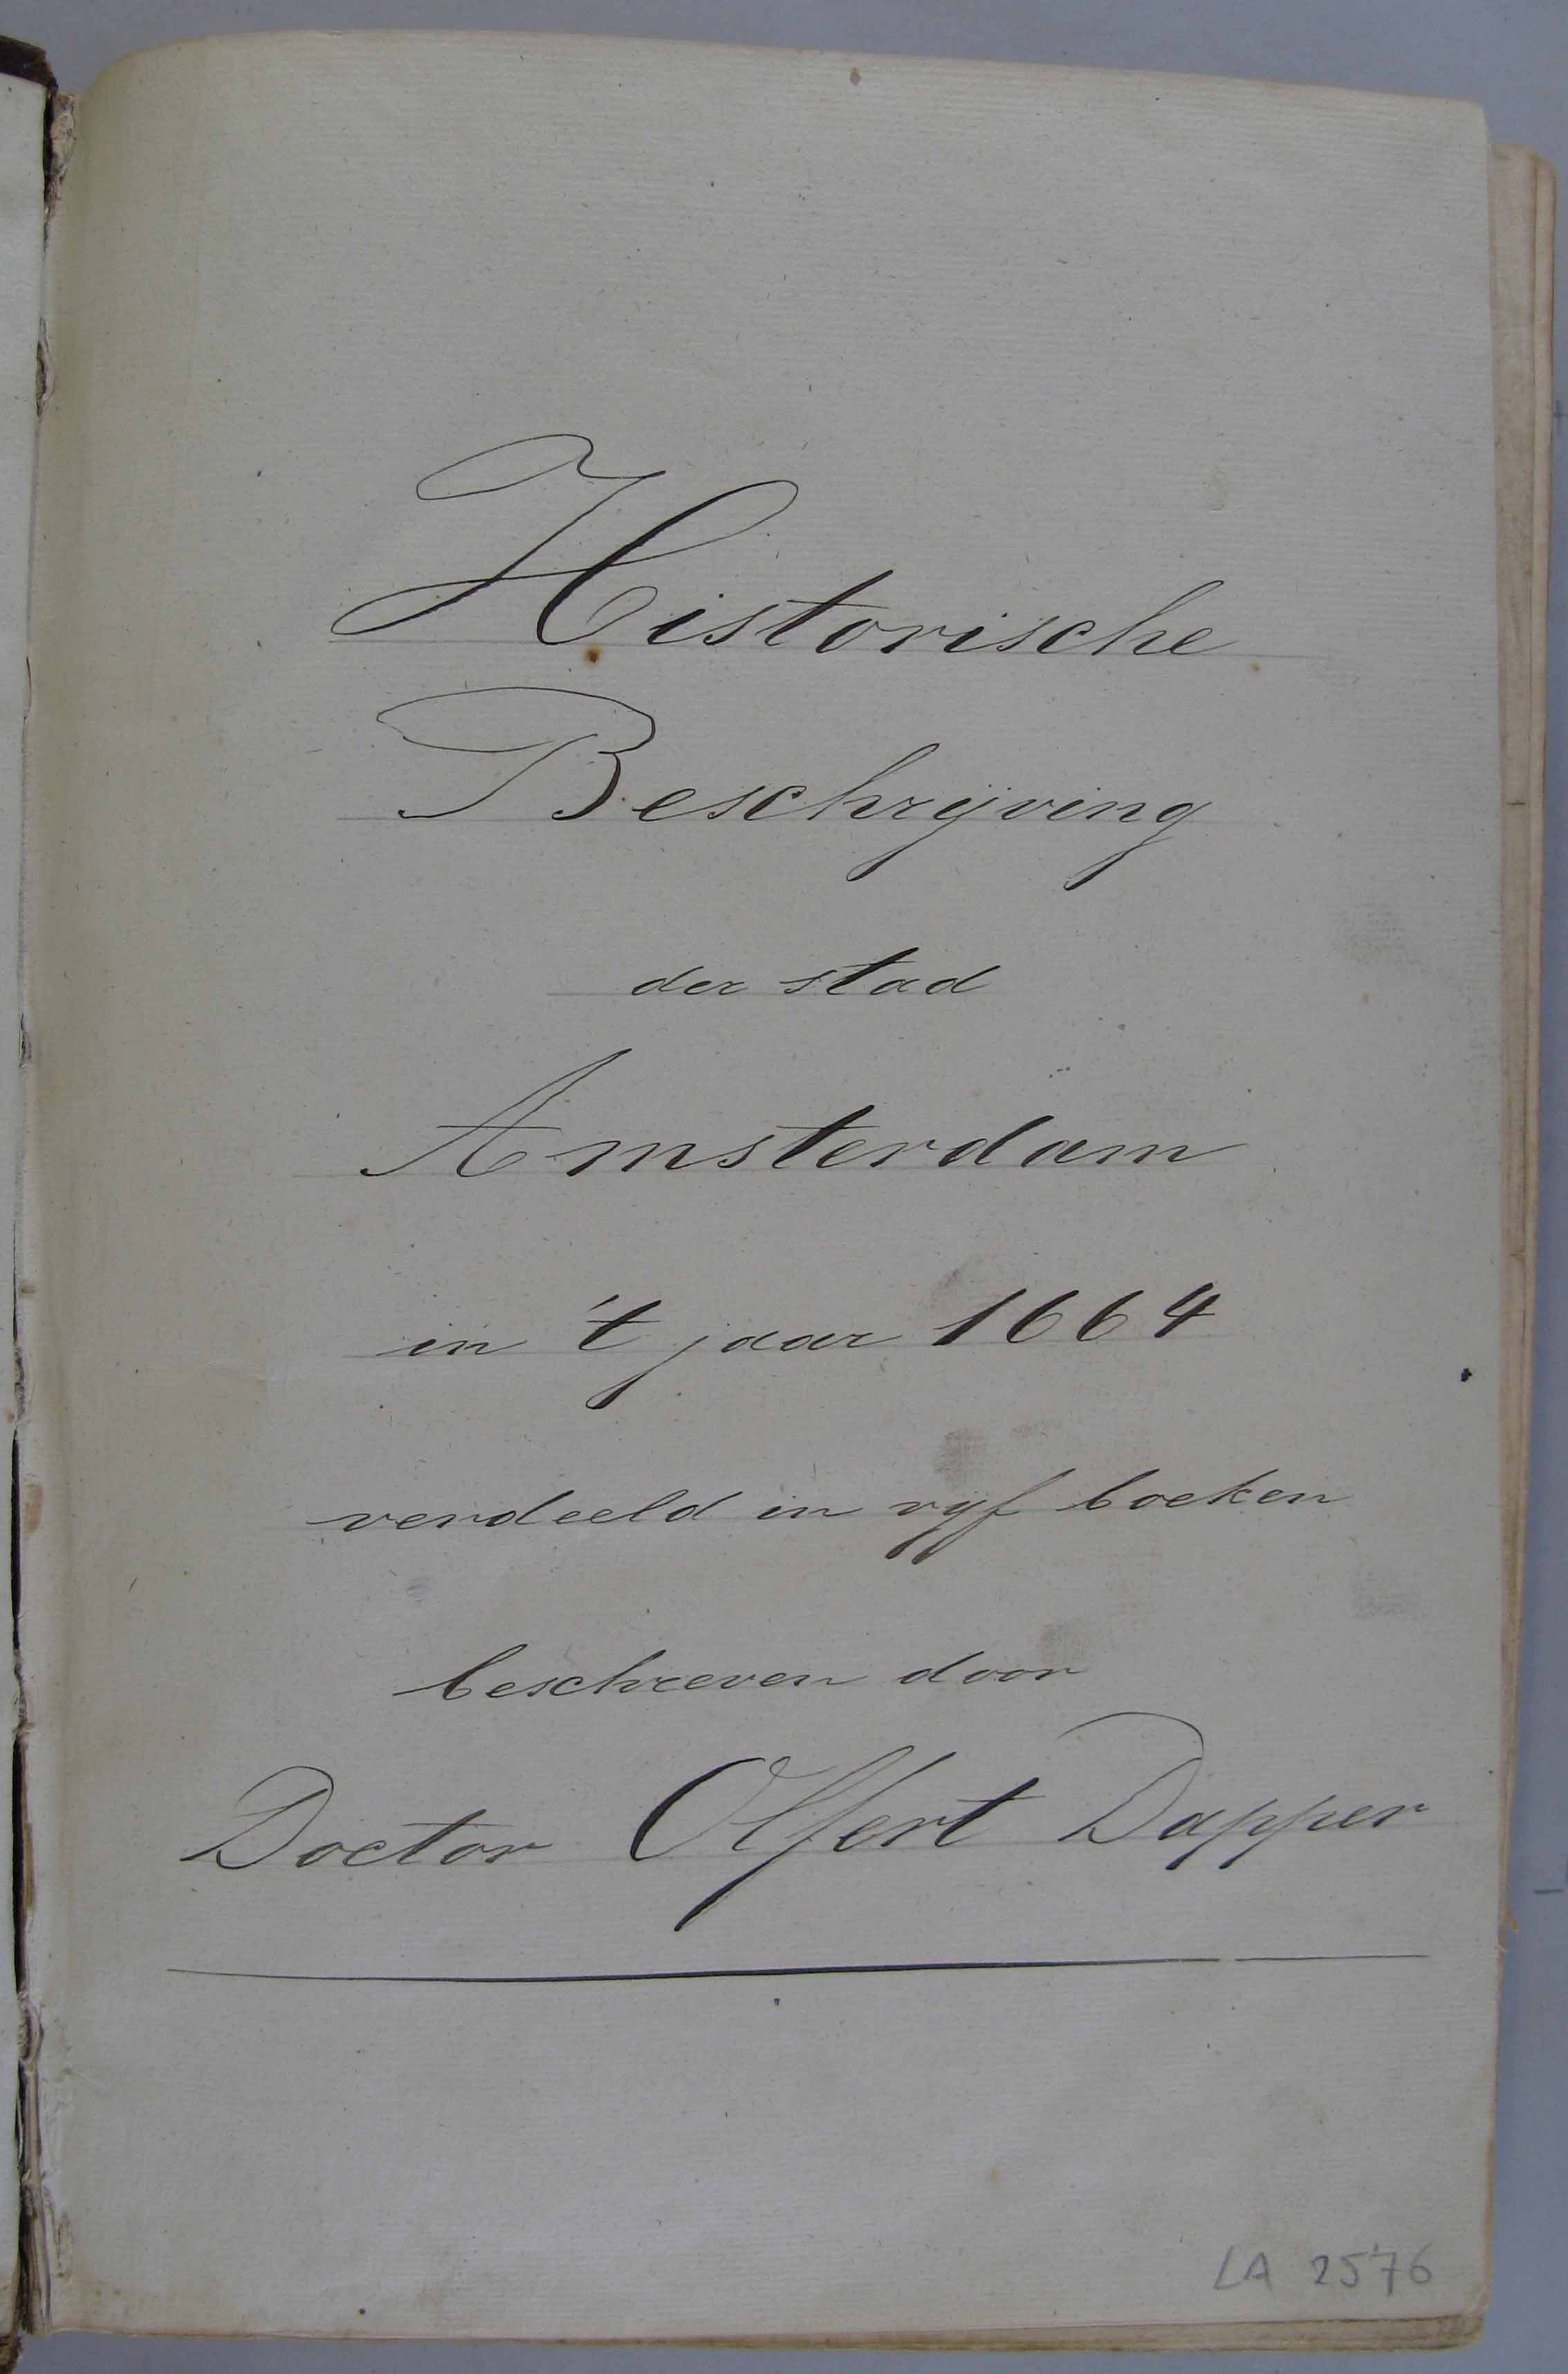 Historische
Beschrijving
der stad
Amsterdam
in 't jaar 1664
verdeeld in vijf boeken
beschreven door
Doctor Olfert Dapper
LA 2576